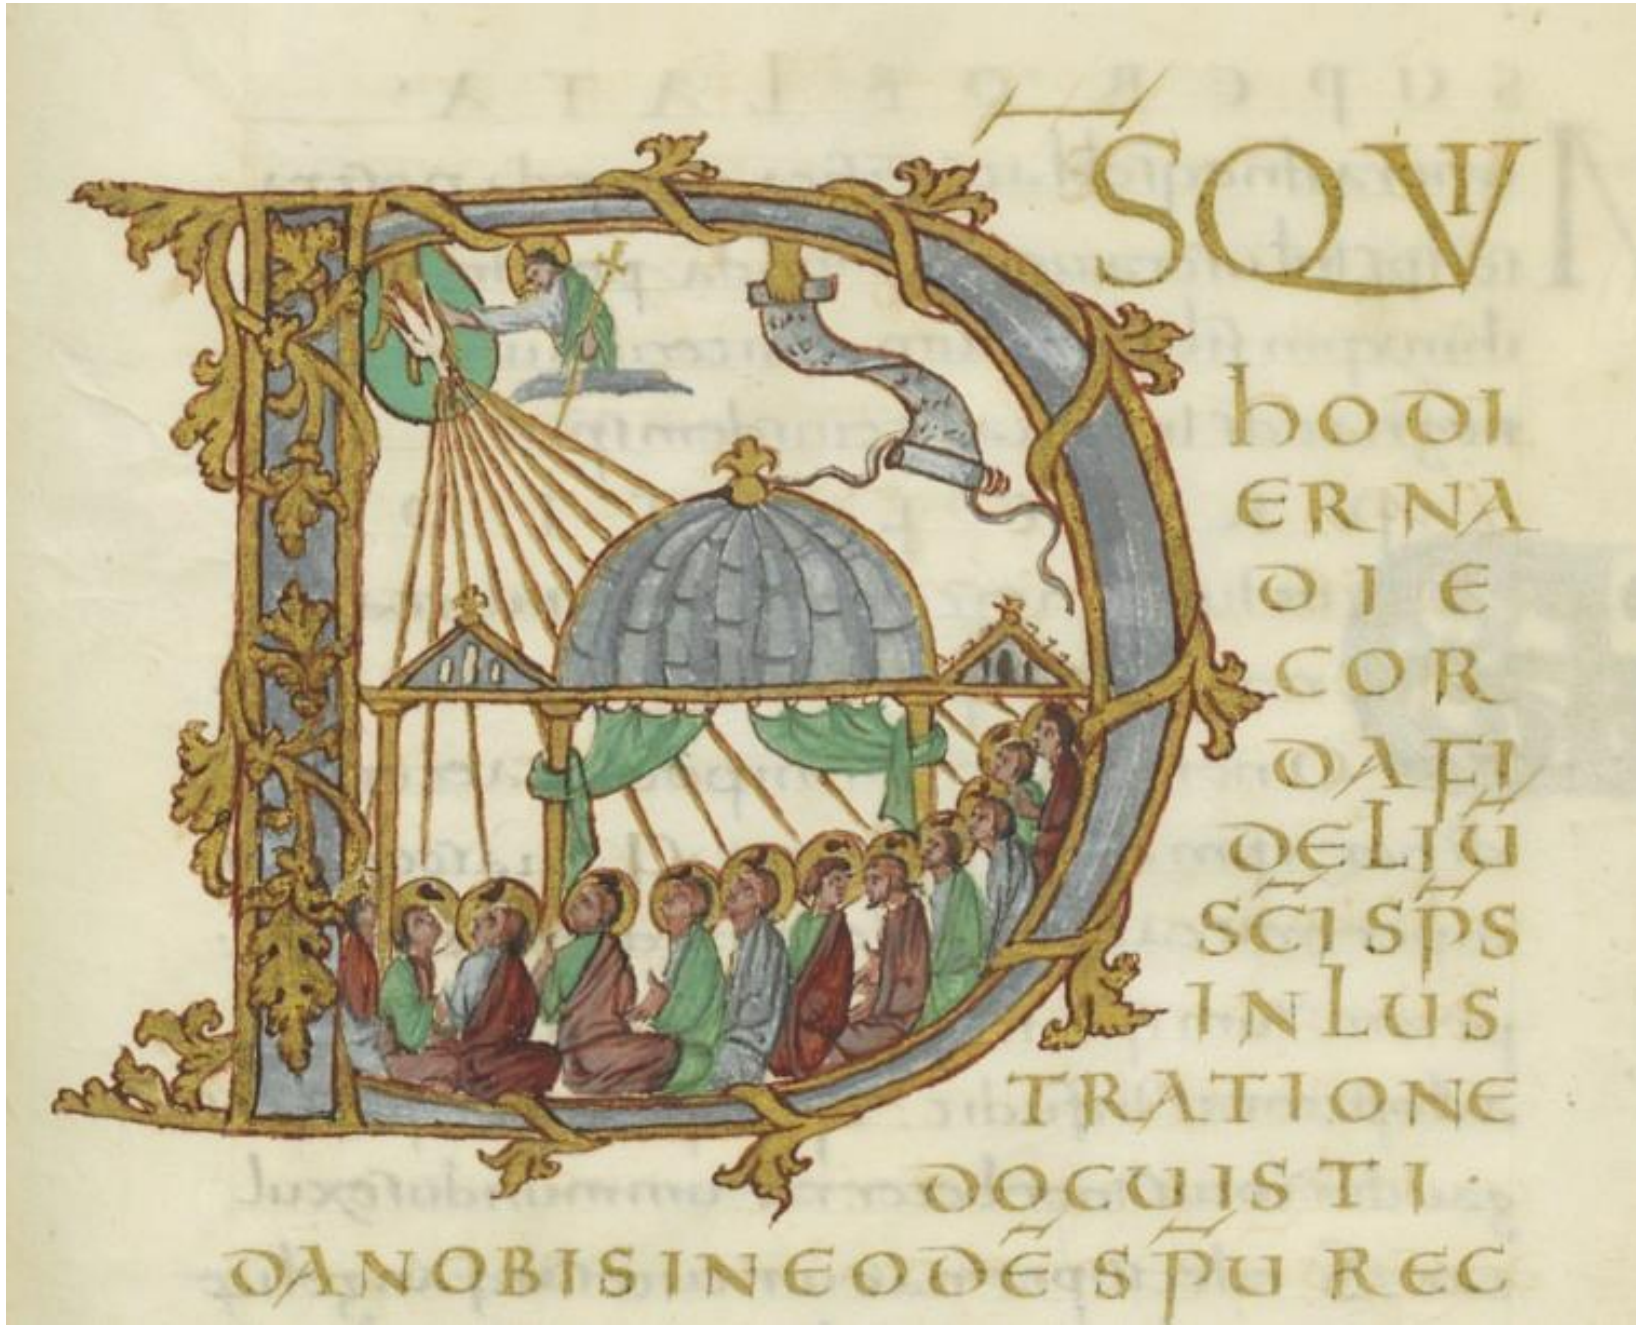 DS̄ QVI
hODI
ERNA
DIE
COR
DAFI
DELIŪ
SC̄I SP̄S
INLUS
TRATIONE
DOCUISTI·
DANOBISINEODĒ SP̄U REC